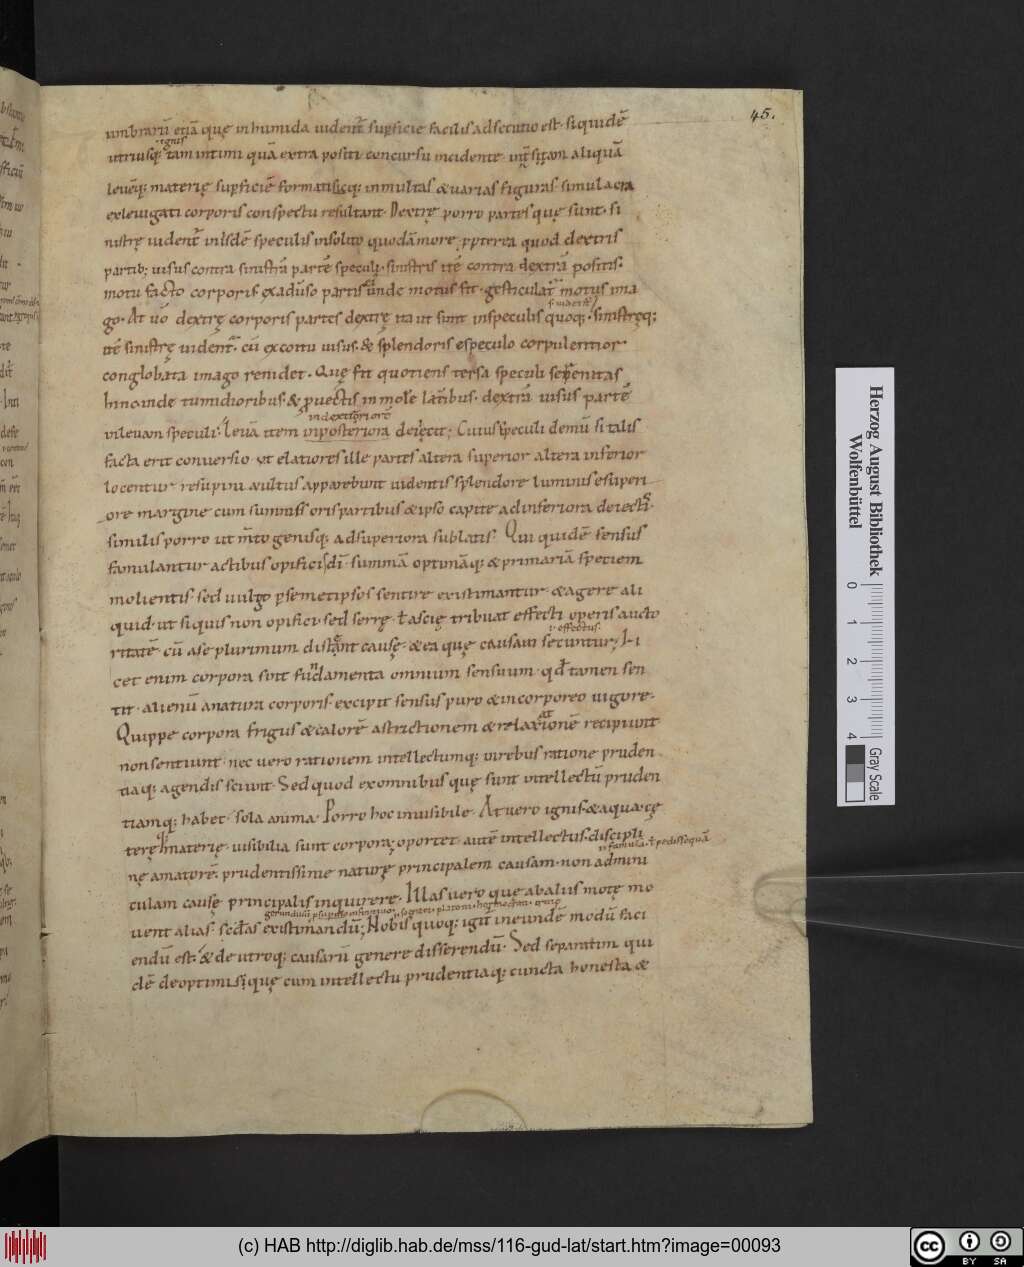 45.
umbrarū etiā quę inhumida uident᷑ sup̱ficie facilis adsecutio est · siquidē
ignis
utriusq; tam intimi quā extra positi concursu incidente · aliquā
leuēq; materię sup̱ficiē formatisq; inmultas & uarias figuras · simulacra
exleuigati corporis conspectu resultant · Dextrę porro partes quę sunt · si
nistrę uident᷑ inisdē speculis insolito quodāmore ꝓpterea quod dextris
partib; uisus contra sinistrā partē speculi · sinistris itē contra dextrā positis ·
motu facto corporis exaduso partis unde motus fit · gesticulat᷑ motus ima
go · At uo dextrę corporis partes dextrę ita ut sunt inspeculis quoq; · sinistręq;
itē sinistrę uident᷑ · cū ex coitu uisus · & splendoris especulo corpulentior
conglobata imago renidet · Quę fit quotiens tersa speculi serenitas
hincinde tumidioribus · & ꝓuectis in mole lateribus · dextrā uisus partē
indexteriorē
inleuam speculi · Leuā item inposteriora deiecit ; Cuius speculi demū si talis
facta erit conuersio · ut elatiores ille partes altera superior altera inferior
locentur resupini auultus apparebunt uidentis splendore luminis esuperi
ore margine cum summis oris partibus & ipso capite adinferiora deiectis ·
similis porro ut mto genisq; adsuperiora sublatis · Qui quidē sensus
famulantur actibus opifici di · summā optimāq; & primariā speciem
molientis · sed uulgo p̱ semetipsos sentire existimantur · & agere ali
quid · ut siquis non opifici · sed serrę · ł ascię tribuat effecti operis aucto
ł effectus
ritatē · cū ase plurimum distant causę · & ea quę causam secuntur ; Li
cet enim corpora sint fundamenta omnium sensuum · qd tamen sen
tit · alienū anatura corporis · excipit sensus puro & incorporeo uigore ·
Quippe corpora frigus & calorē astrictionem & relaxationē recipiunt
nonsentiunt · nec uero rationem intellectumq; uirebus ratione pruden
tiaq; agendis sciunt · Sed quod ex omnibus quę sunt intellectū pruden
tiamq; habet · sola anima · Porro hoc inuisibile · At uero ignis · & aqua · cę
terę materię · uisibilia sunt corpora ; oportet · autē intellectus · discipli
famula · ł pedissequā
nę amatorē · prudentissimę naturę principalem causam · non admini
culam causę principalis inquirere · Illas uero que abaliis motę mo
uent alias · secdas existimandū ; Nobis quoq; igit᷑ ineundē modū faci
endū est · & de utroq; causarū genere disserendū · Sed separatim qui
dē deoptimis ; quę cum intellectu prudentiaq; cuncta honesta &
Herzog August Bibliothek
Wolfenbüttel
0 1 2 3 4
Gray Scale
(c) HAB http://diglib.hab.de/mss/116-gud-lat/start.htm?image=00093
cc BY SA